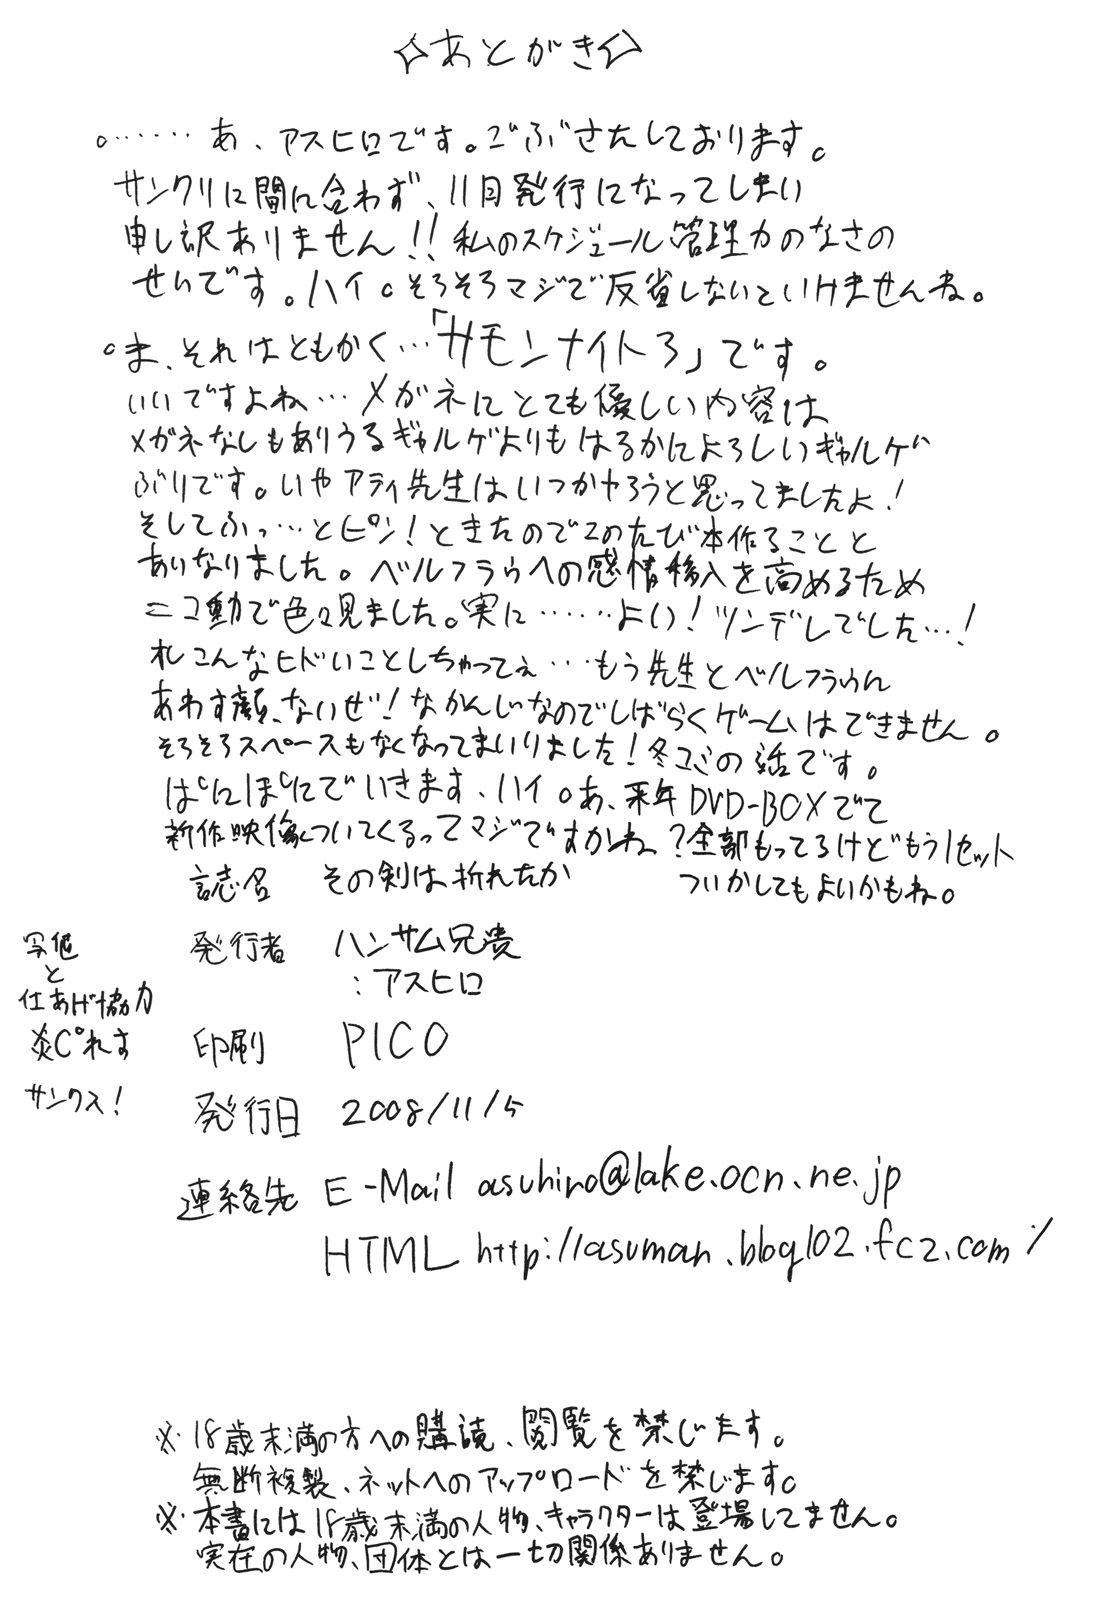 ☆あとがき☆
。‥‥‥あ、アスヒロです。ごぶさたしております。
サンクリに間に合わず、11月発行になってしまい
申し訳ありません!!私のスケジュール管理力のなさの
せいです。ハイ。そろそろマジで反省しないといけませんね。
。ま、それはともかく…「サモンナイト3」です。
いいですよね…メガネにとても優しい内容は
メガネなしもありうるギャルゲよりもはるかによろしいギャルゲ
ぶりです。いやアティ先生はいつかやろうと思ってましたよ!
そしてふっ…とピン!ときたのでこのたび本作ることと
あいなりました。ベルフラウへの感情移入を高めるため
ニコ動で色々見ました。実に‥‥‥よい!ツンデレでした…!
こんなヒドいことしちゃってぇ…もう先生とベルフラウに
あわす顔、ないぜ!なかんじなのでしばらくゲームはできません。
そろそろスペースもなくなってまいりました!冬コミの話です。
ぱにぽにでいきます、ハイ。あ、来年DVD-BOXでて
新作映像ついてくるってマジですかね?全部もってるけどもう1セット
ついかしてもよいかもね。
誌名 その剣は折れたか
発行者 ハンサム兄貴
:アスヒロ
写植
と
仕あげ協力
炎ぴれす
サンクス!
印刷 PICO
発行日 2008/11/5
連絡先 E-Mail asuhiro@lake.ocn.ne.jp
HTML http://asuman.blog102.fc2.com/
※18歳未満の方への購読、閲覧を禁じます。
無断複製、ネットへのアップロードを禁じます。
※本書には18歳未満の人物、キャラクターは登場してません。
実在の人物、団体とは一切関係ありません。